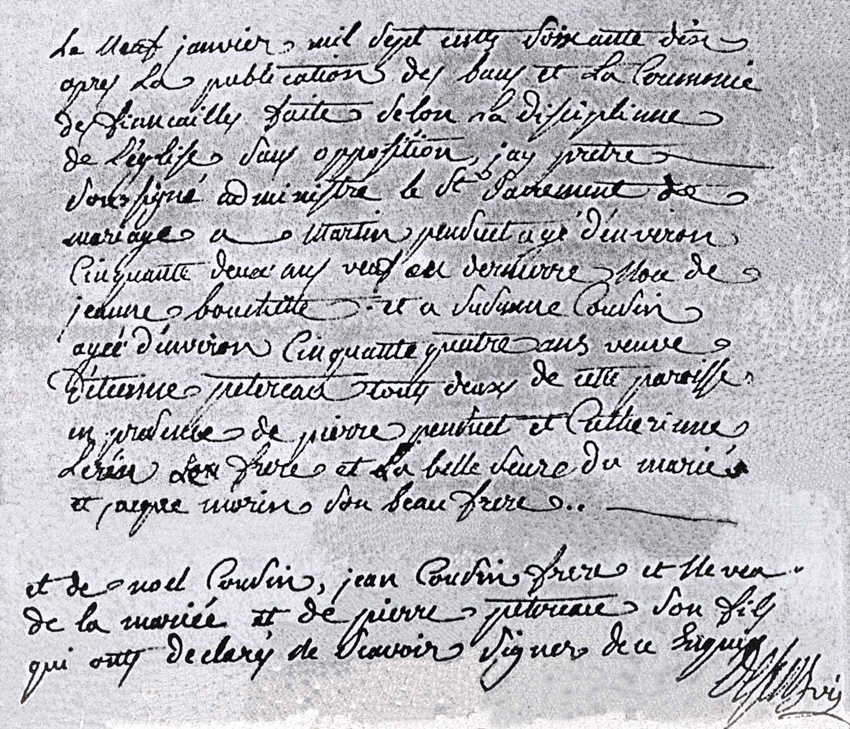 Le Neuf janvier mil sept cents soixante dix
apres La publication des bans et La Ceremonie
des fiancailles faite selon La disciplinne
de L'eglise sans opposition, jay pretre
soussigné administre le St Sacrement de
mariage a Martin penduet agé d'environ
Cinquante deux ans veuf en dernierre Noce de
jeanne et a Susanne Cousin
agée d'environ Cinquante quatre ans veuve
D'etienne petereau touts deux de cette paroisse
en presence de pierre penduet et Catherinne
son frere et La belle seure du marié
et jacque morin son beau frere ..
et de noel Cousin, jean Cousin frere et Neveu
de la mariée et de pierre petereau son fils
qui onts declarés ne scavoir signer de ce Enquis